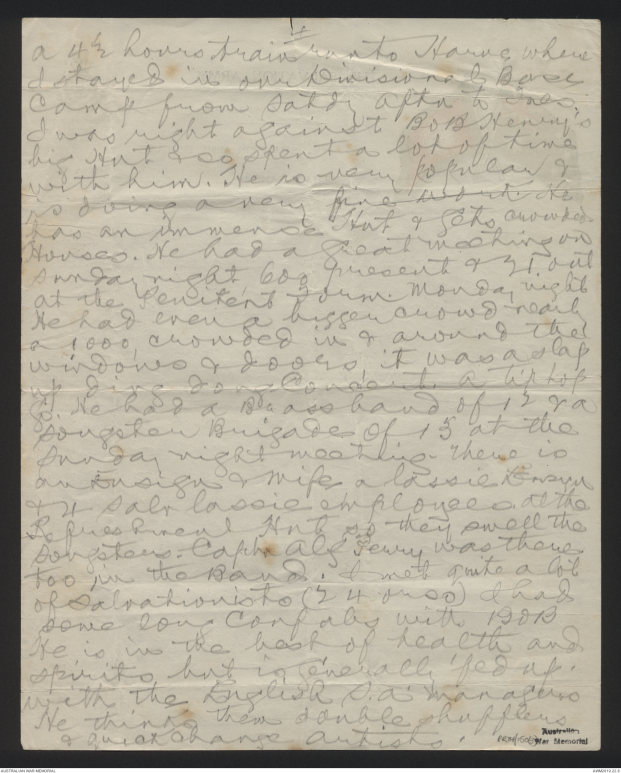 4
a 4½ hours train run to Havre where
I stayed in our Divisional Base
Camp from Satdy aftn to Tues.
I was right against BOB Henry's
big Hut & so spent a lot of time
with him. He is very popular &
is doing a very fine work. He
has an immense Hut & gets crowded
Houses. He had a great meeting on
Sunday night, 600 present & 21 out
at the Penitent Form. Monday night
He had even a bigger crowd nearly
a 1000, crowded in & around the
windows & doors, it was a slap
up ding dong Concert. a tiptop
go. He had a Brass band of 12 & a
Songster Brigade of 15 at the
Sunday night meeting. There is
an Ensign & Wife a lassie Ensign
& 4 Salv lassie employees at the
Refreshment Hut so they swell the
Songsters. Captn Alf Ferry was there
too in the Band. I met quite a lot
of Salvationists (24 or so) I had
some long Confabs with BOB
He is in the best of health and
spirits but is generally fed up
with the English S.A. managers
He thinks them double shufflers
& quick change artists.
Australian
War Memorial
AUSTRALIAN WAR MEMORIAL
AWM2019.22.5